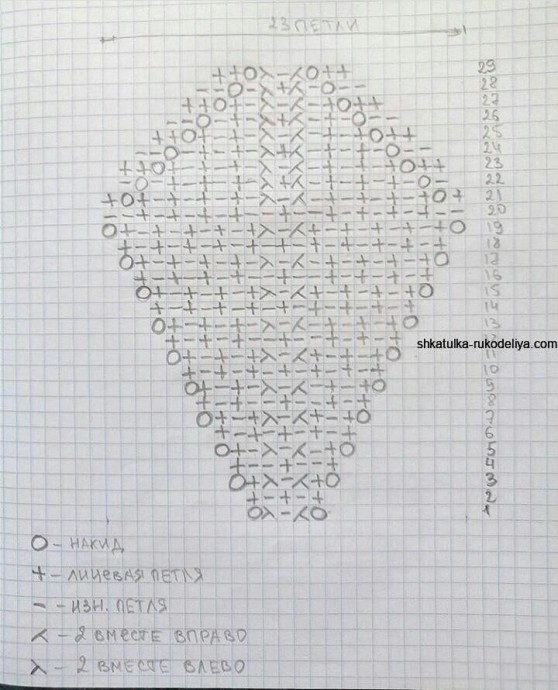 23 ПЕТЛИ
29
28
27
26
25
24
23
22
21
20
19
18
17
16
15
14
13
shkatulka-rukodeliya.com
11
10
9
8
7
6
5
4
3
2
1
O - НАКИД
+ - ЛИЦЕВАЯ ПЕТЛЯ
- - ИЗН. ПЕТЛЯ
⋌ - 2 ВМЕСТЕ ВПРАВО
⋋ - 2 ВМЕСТЕ ВЛЕВО